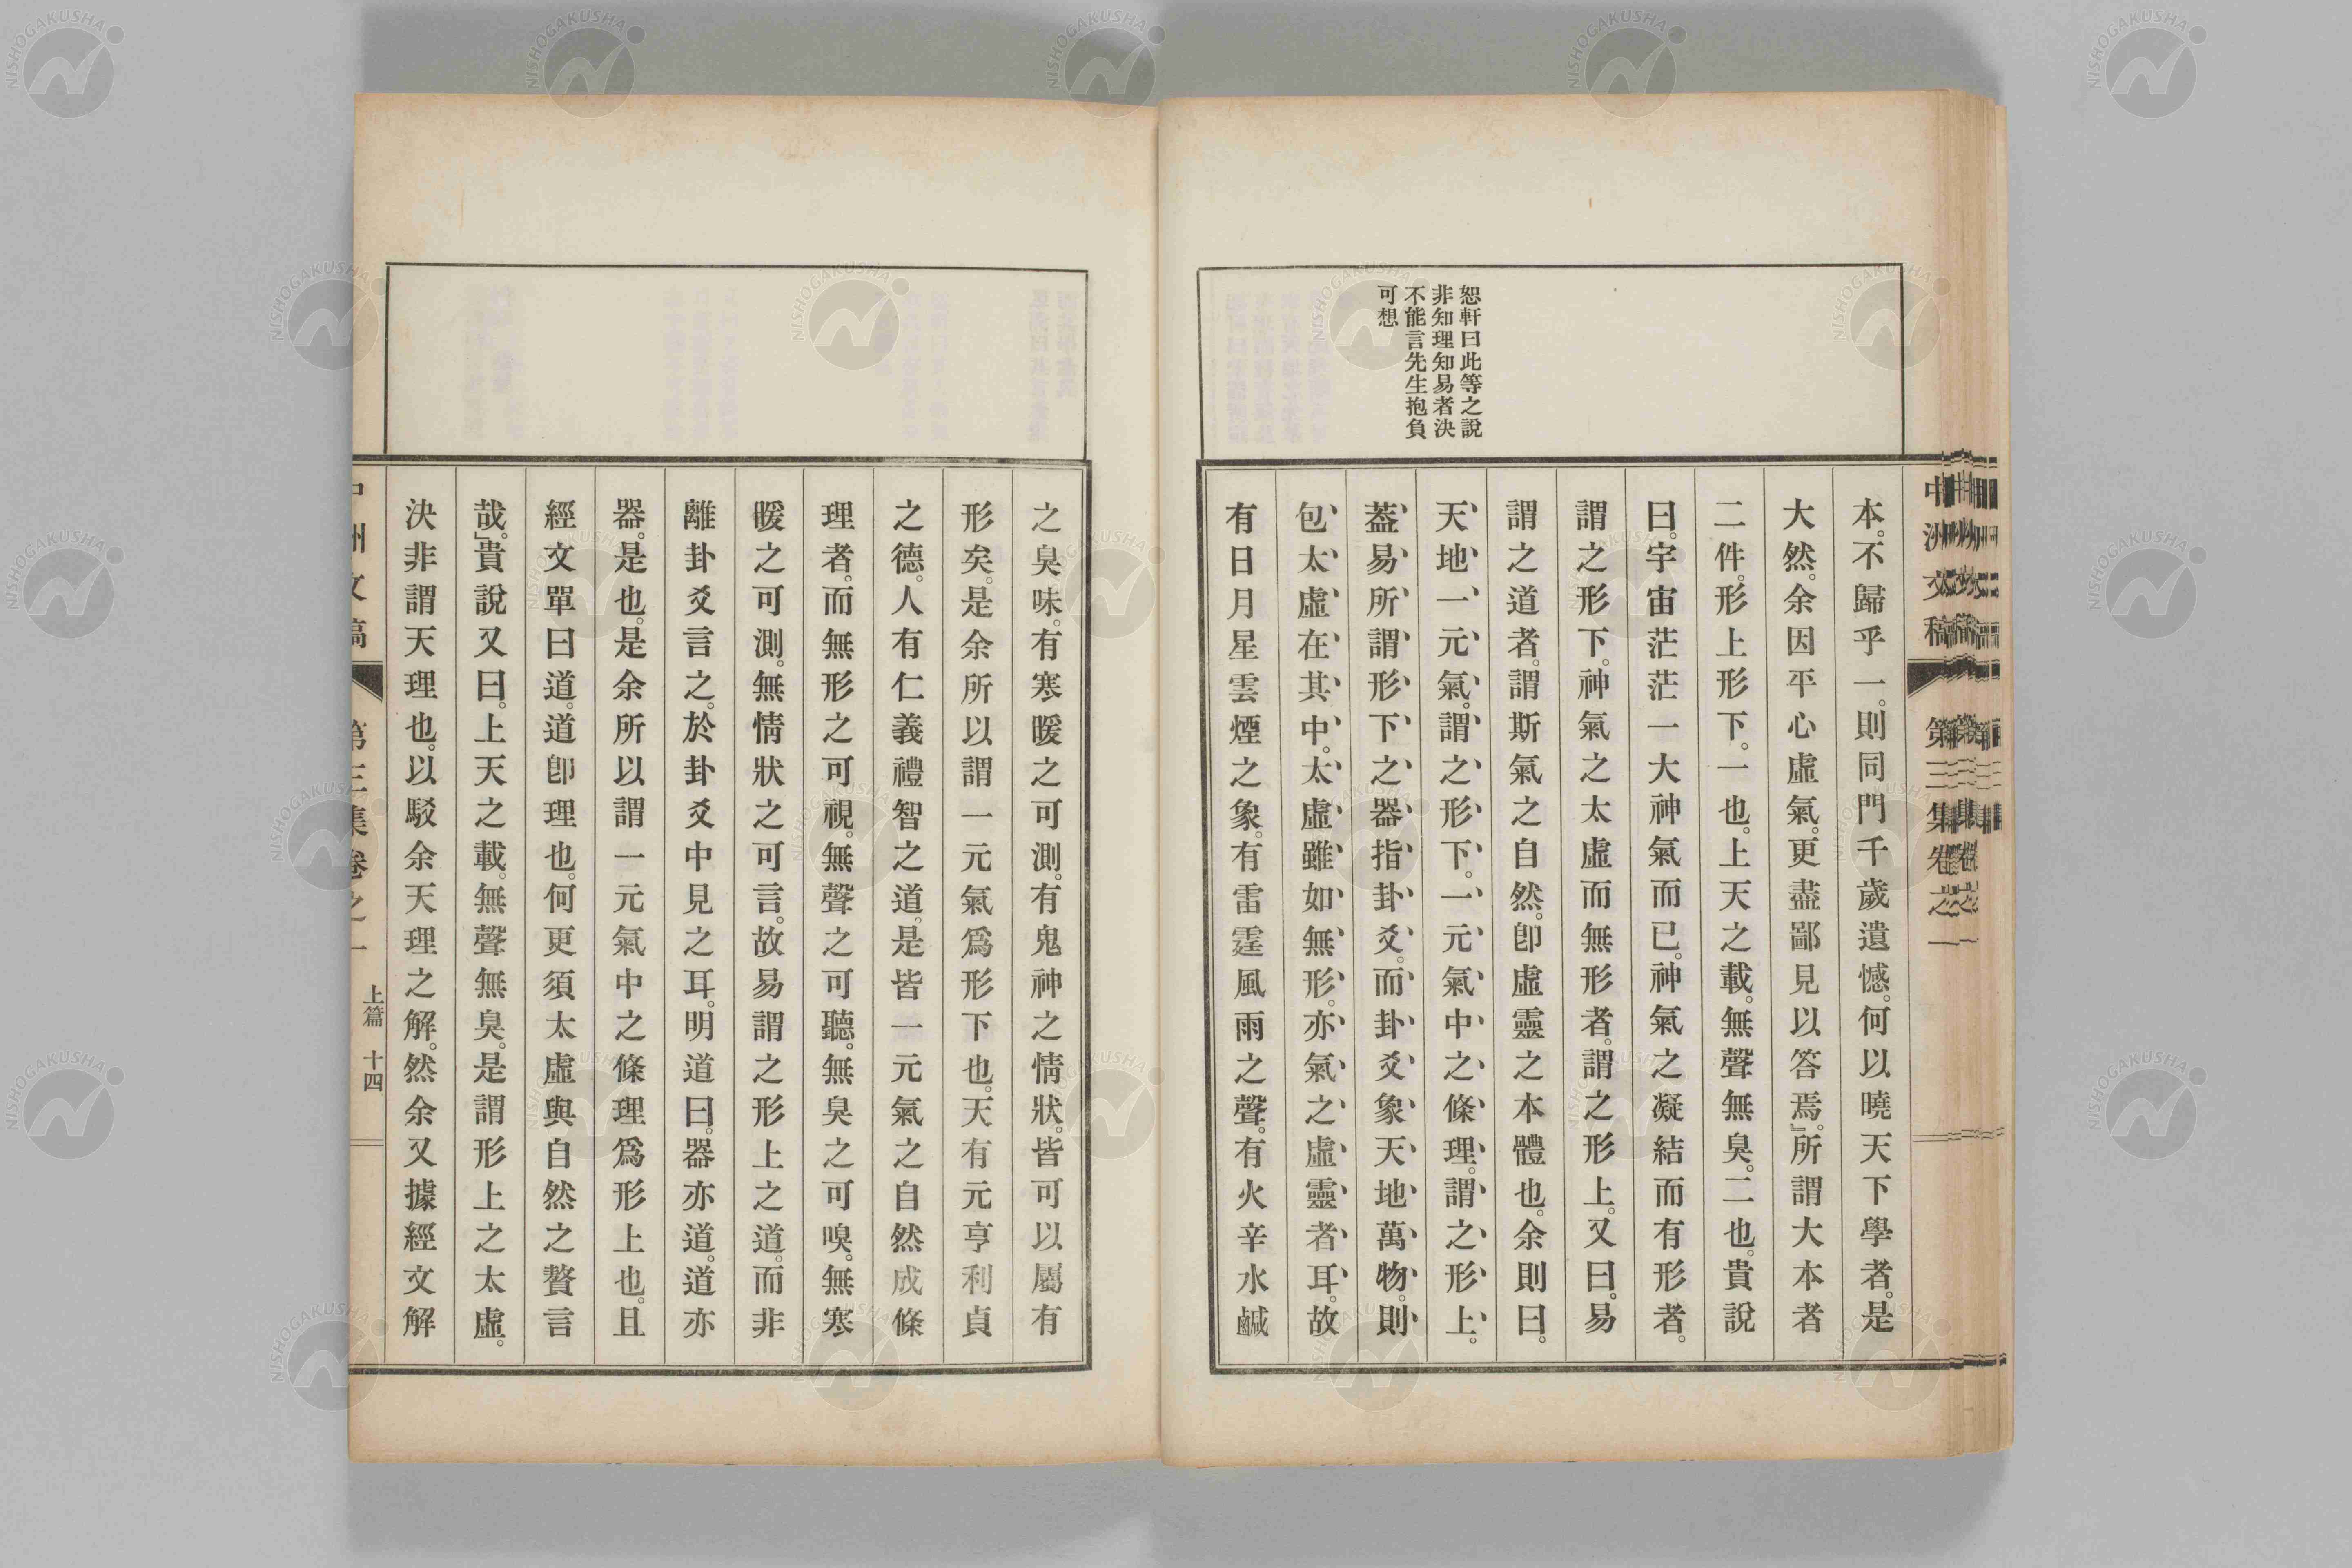 中洲文稿 第三集卷之一
恕軒曰此等之說
非知理知易者決
不能言先生抱負
可想
本。不歸乎一。則同門千歲遺憾。何以曉天下學者。是
大然。余因平心虛氣。更盡鄙見以答焉。』所謂大本者
二件。形上形下。一也。上天之載。無聲無臭。二也。貴說
曰。宇宙茫茫一大神氣而已。神氣之凝結而有形者。
謂之形下。神氣之太虛而無形者。謂之形上。又曰。易
謂之道者。謂斯氣之自然。卽虛靈之本體也。余則曰。
天地一元氣。謂之形下。一元氣中之條理。謂之形上。
蓋易所謂形下之器指卦爻。而卦爻象天地萬物。則
包太虛在其中。太虛雖如無形。亦氣之虛靈者耳。故
有日月星雲煙之象。有雷霆風雨之聲。有火辛水鹹
之臭味。有寒暖之可測。有鬼神之情狀。皆可以屬有
形矣。是余所以謂一元氣爲形下也。天有元亨利貞
之德。人有仁義禮智之道。是皆一元氣之自然成條
理者。而無形之可視。無聲之可聽。無臭之可嗅。無寒
暖之可測。無情狀之可言。故易謂之形上之道。而非
離卦爻言之。於卦爻中見之耳。明道曰。器亦道。道亦
器。是也。是余所以謂一元氣中之條理爲形上也。且
經文單曰道。道卽理也。何更須太虛與自然之贅言
哉。』貴說又曰。上天之載。無聲無臭。是謂形上之太虛。
決非謂天理也。以駁余天理之解。然余又據經文解
中洲文稿 第三集卷之一 上篇 十四
NISHOGAKUSHA